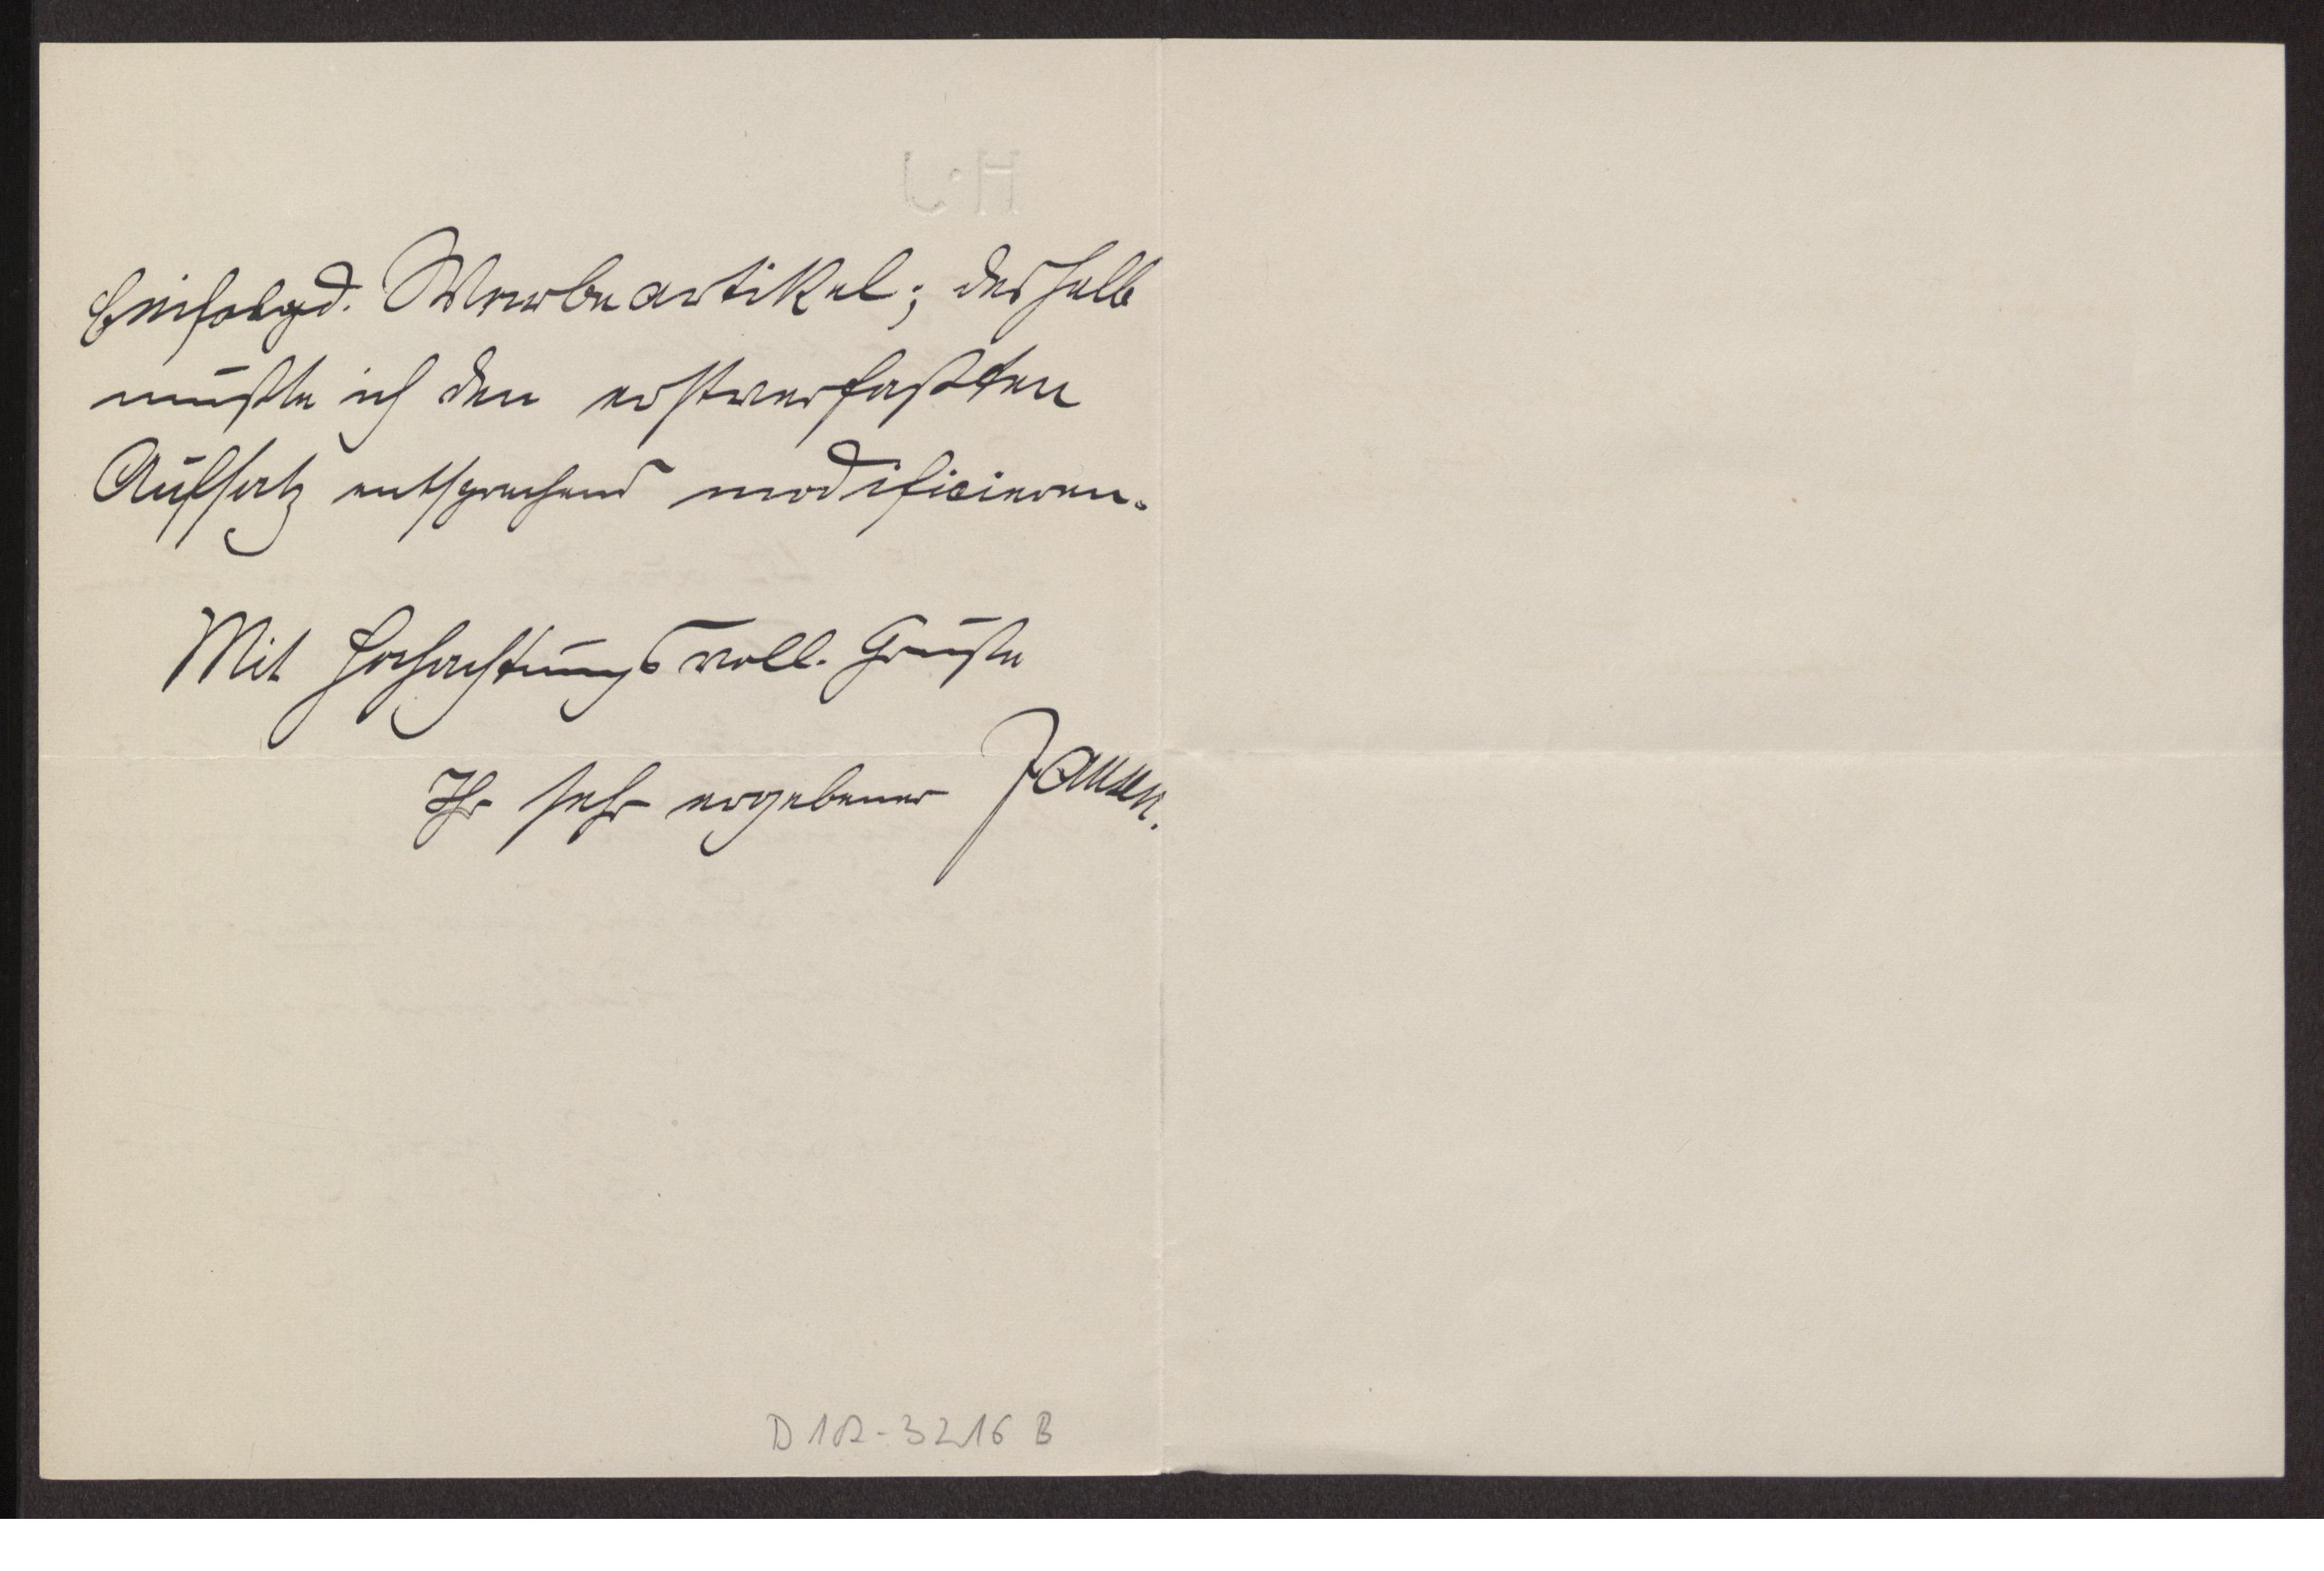 beifolgd. Werbeartikel; deshalb
mußte ich den erstverfaßten
Aufsatz entsprechend modificieren.
Mit hochachtungsvoll. Gruße
Ihr sehr ergebener Jansen.
D 102-3216 B